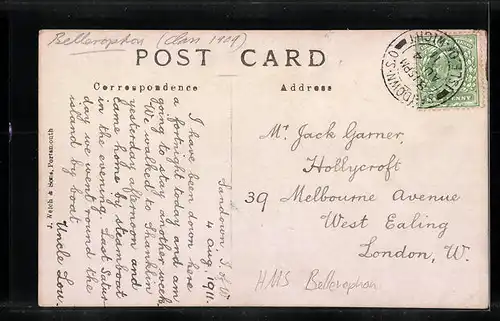 Bellerophon (Class 1909)
POST CARD
Correspondence
Address
Sandown I.O.W.
4 Aug. 1911.
I have been down here
a fortnight today and am
going to stay another week.
We walked to Shanklin
yesterday afternoon and
came home by steamboat
in the evening. Last Satur
day we went round the
island by boat
Uncle Lou.
Mr. Jack Garner,
Hollycroft
39 Melbourne Avenue
West Ealing
London, W.
HMS Bellerophon
7. Welch & Sons, Portsmouth
SANDOWN
ISLE OF WIGHT